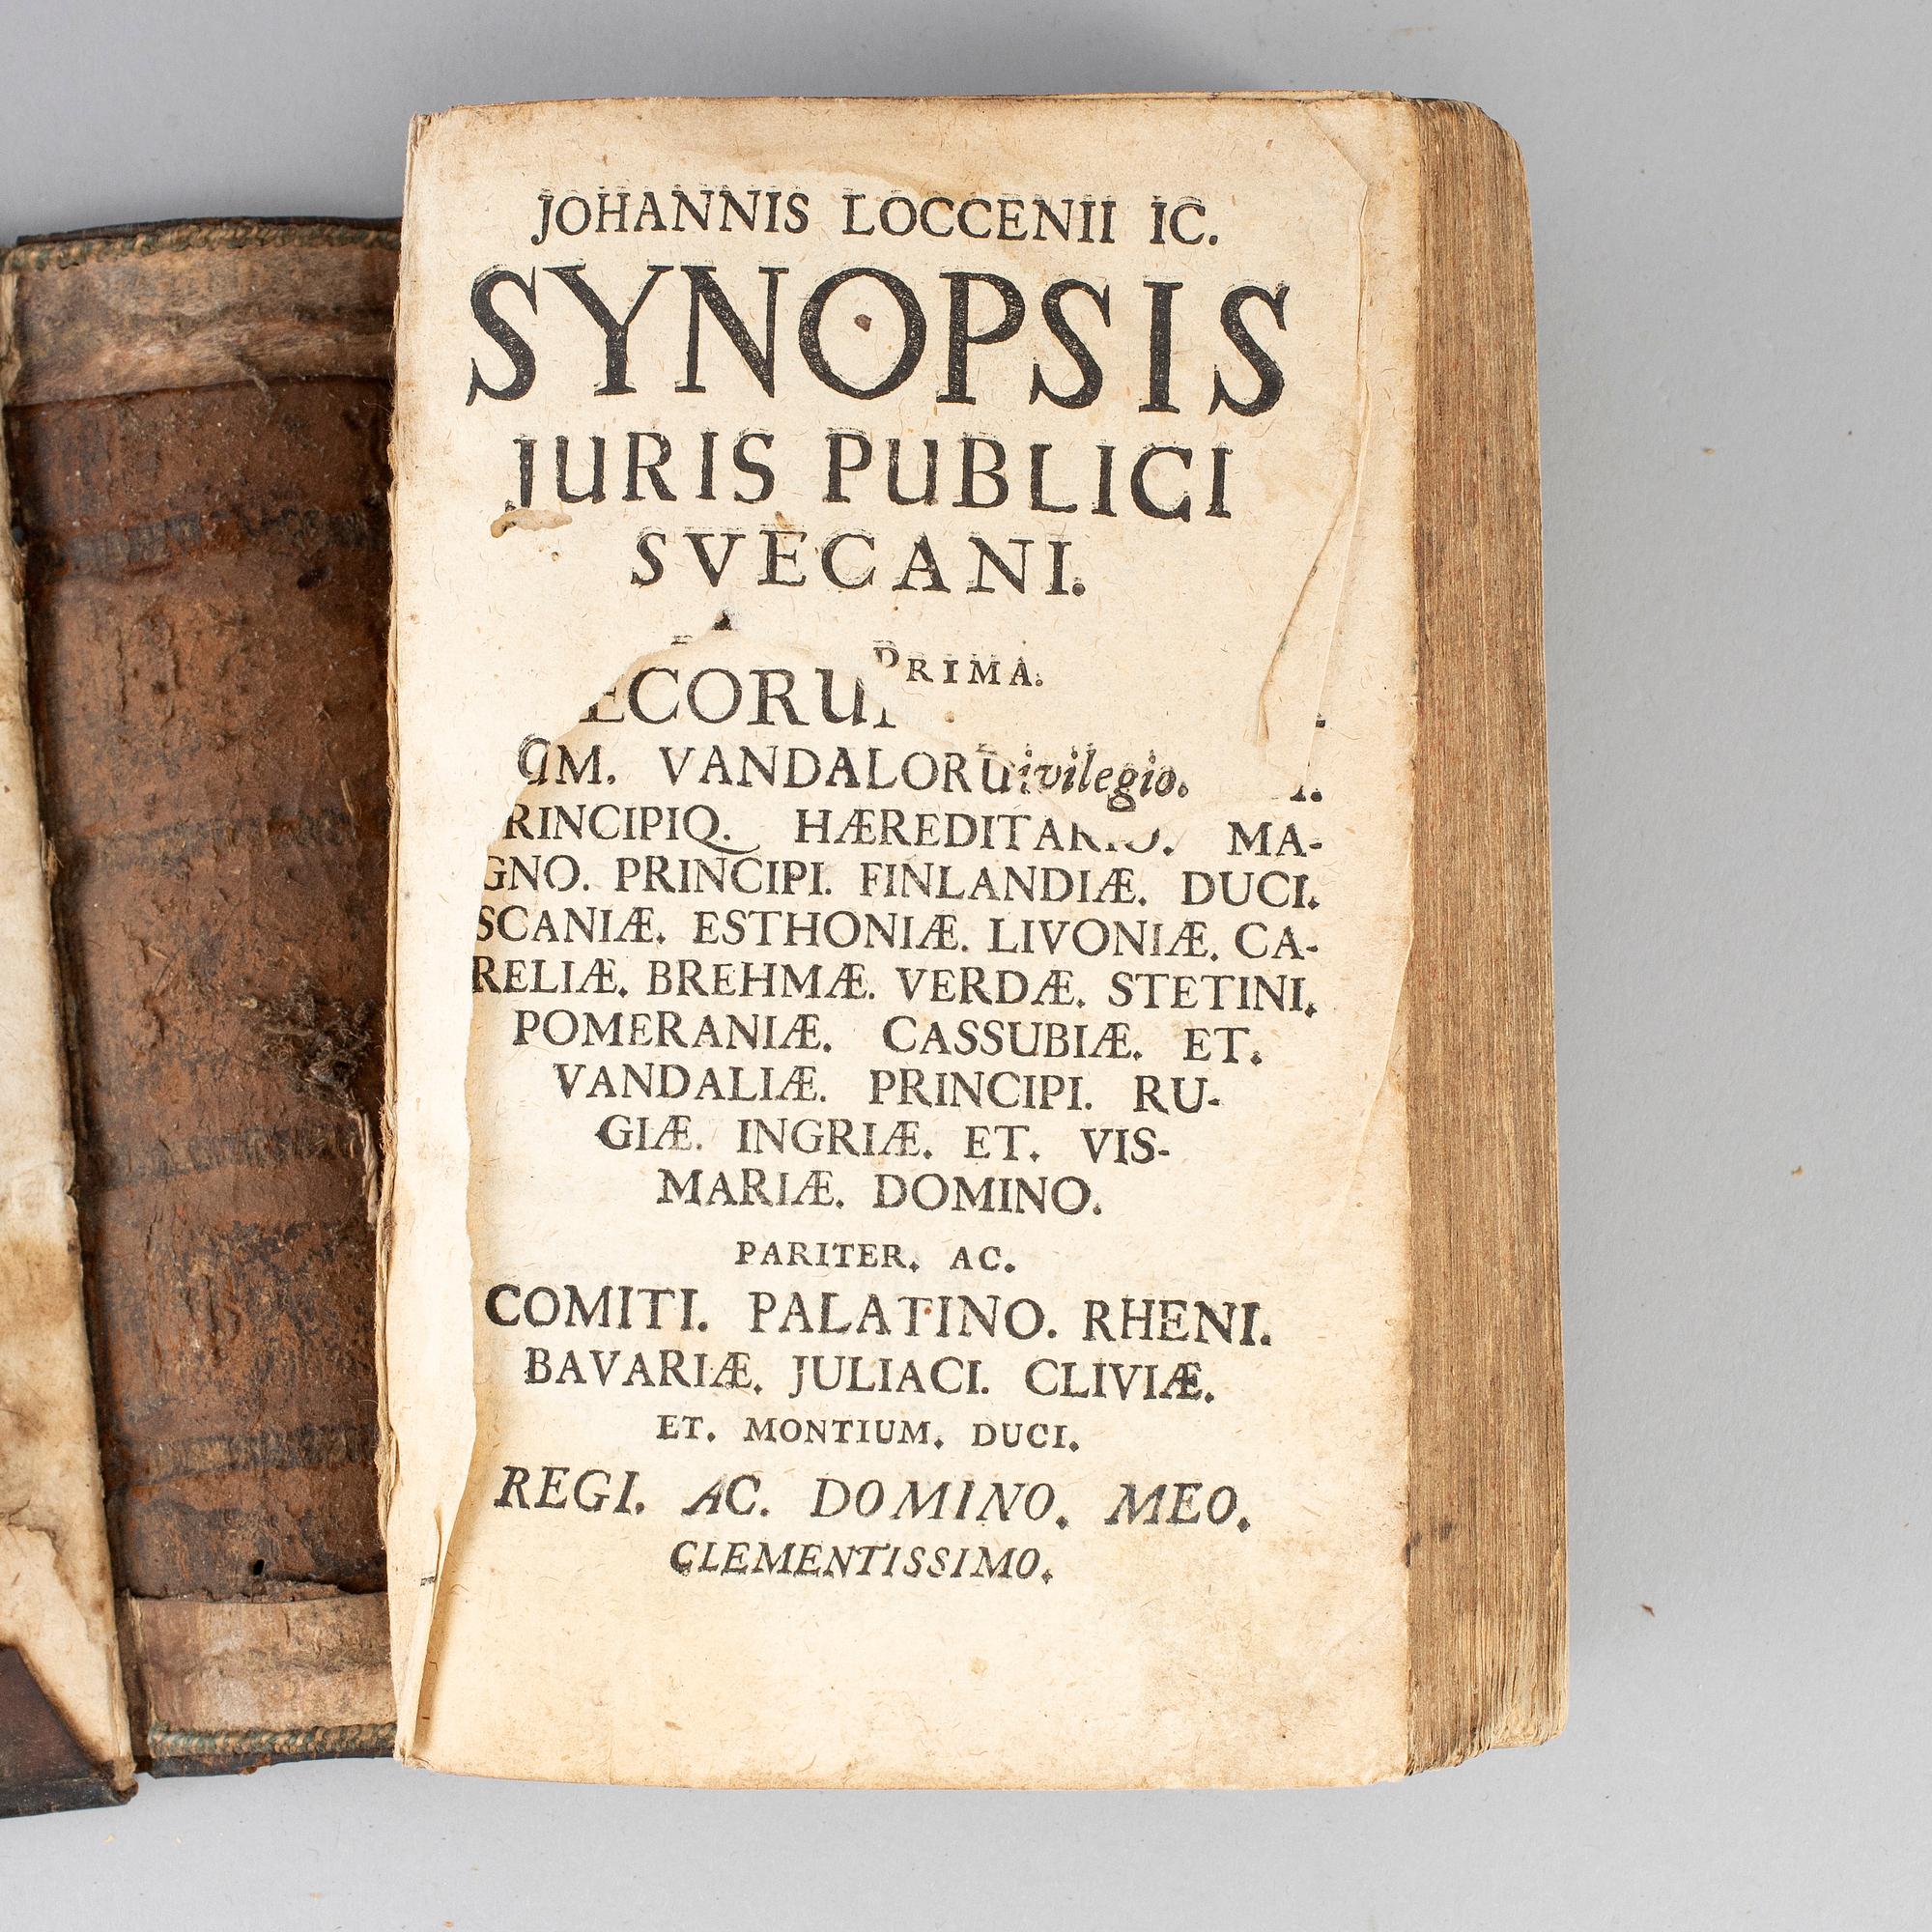 JOHANNIS LOCCENII IC.
SYNOPSIS
JURIS PUBLICI
SVECANI.
PRIMA.
ECORU
UM. VANDALORU
ivilegio.
RINCIPIQ. HÆREDITARIO. MA-
GNO. PRINCIPI. FINLANDIÆ. DUCI.
SCANIÆ. ESTHONIÆ. LIVONIÆ. CA-
RELIÆ. BREHMÆ. VERDÆ. STETINI.
POMERANIÆ. CASSUBIÆ. ET.
VANDALIÆ. PRINCIPI. RU-
GIÆ. INGRIÆ. ET. VIS-
MARIÆ. DOMINO.
PARITER. AC.
COMITI. PALATINO. RHENI.
BAVARIÆ. JULIACI. CLIVIÆ.
ET. MONTIUM. DUCI.
REGI. AC. DOMINO. MEO.
CLEMENTISSIMO.